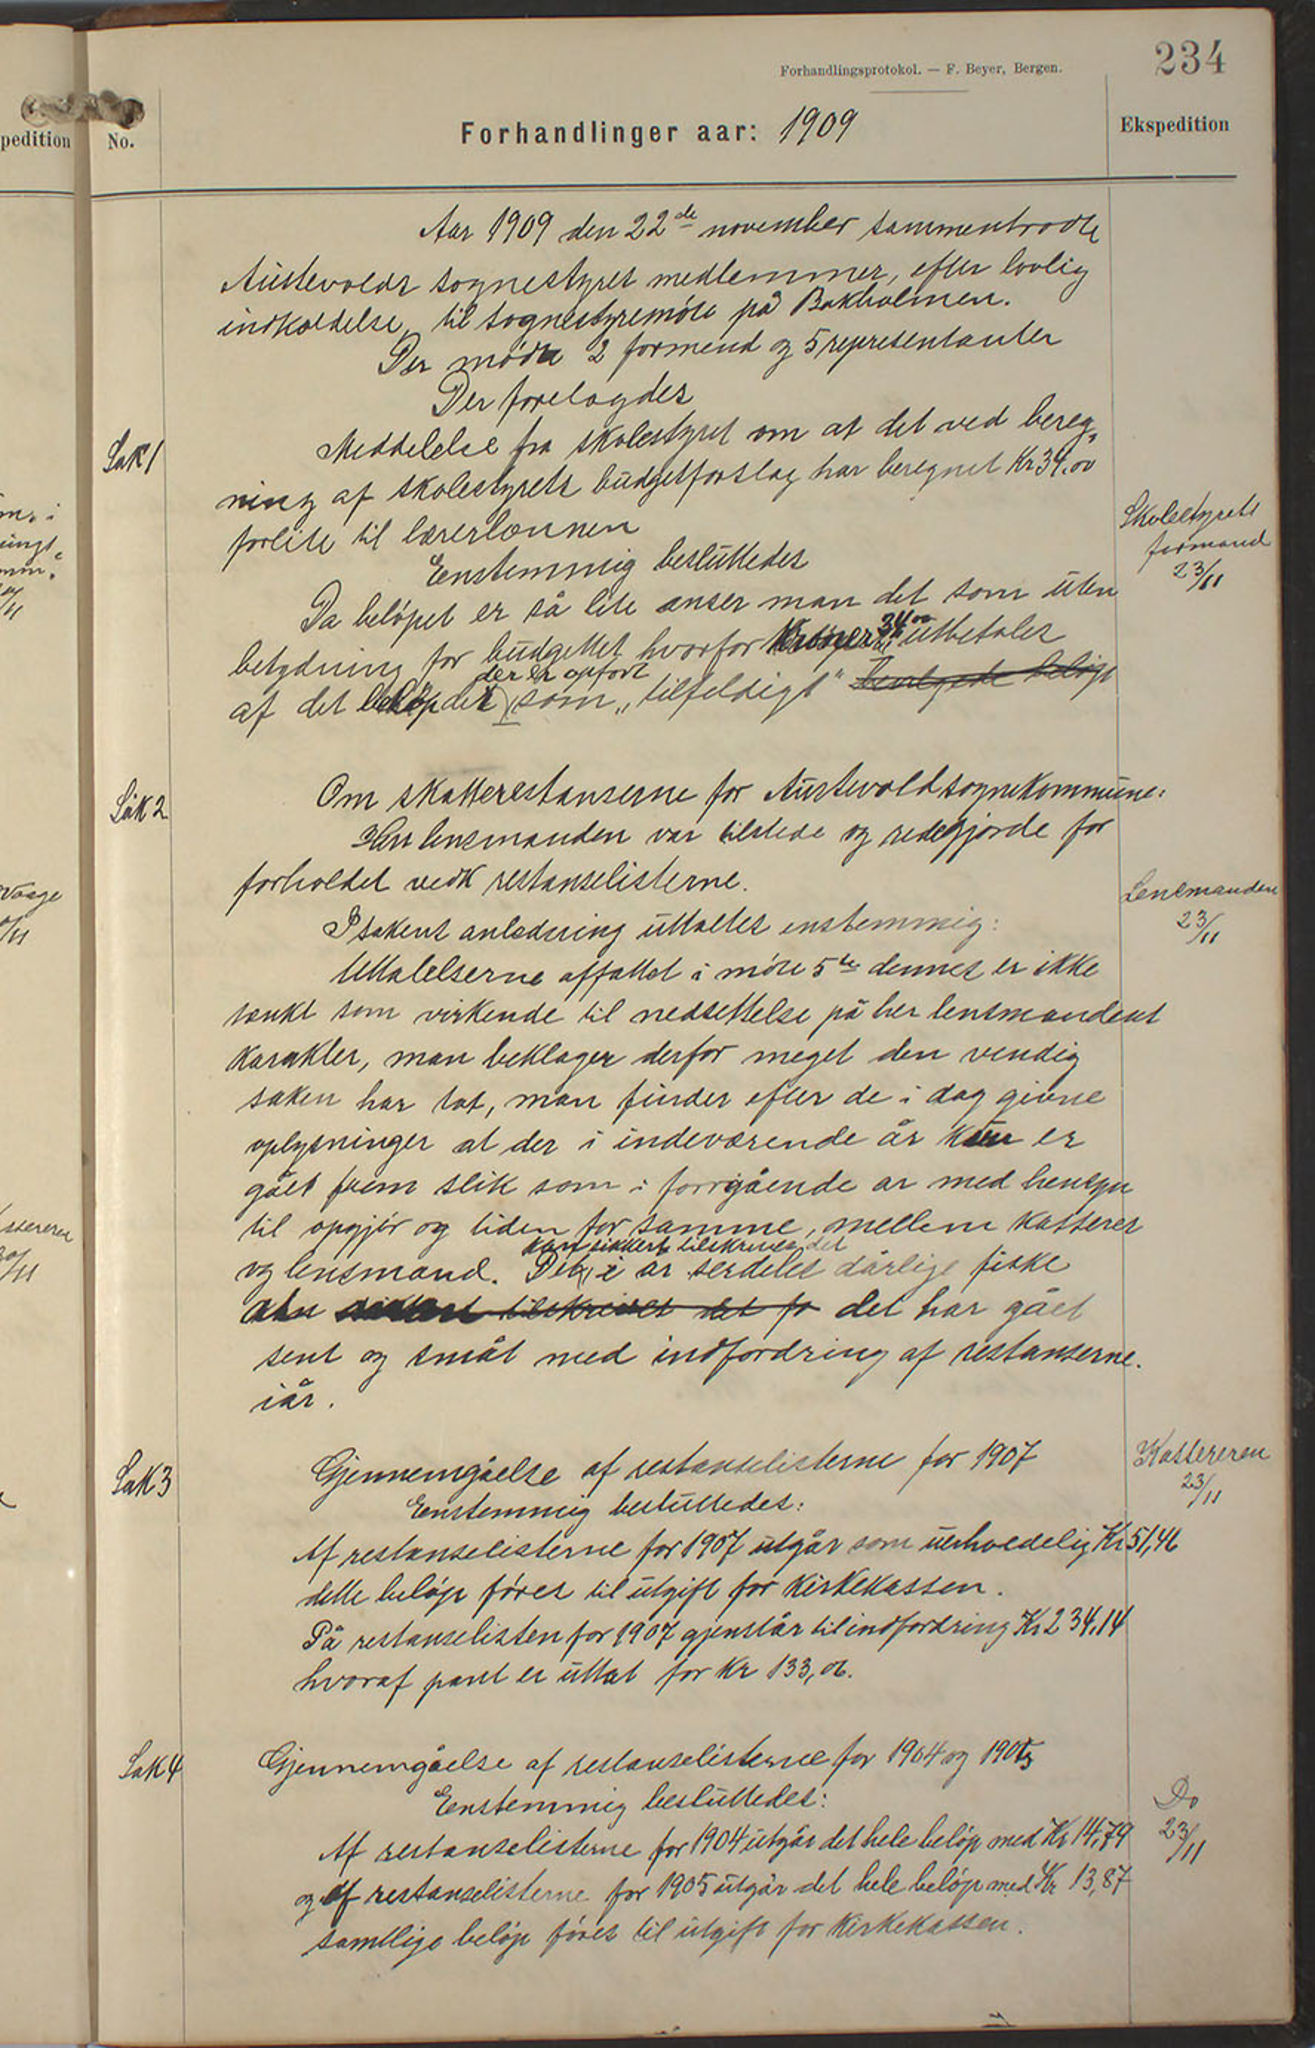 234
Forhandlingsprotokol. — F. Beyer, Bergen.
pedition
No.
Forhandlinger aar: 1909
Ekspedition
Aar 1909 den 22de november sammentrødte
Austevolds sognestyres medlemmer, efter lovlig
indkaldelse, til sognestyremöte på Bakholmen.
Der mödte 2 formend og 5 representanter
Der forelagdes
Sak 1
Meddelelse fra skolestyret om at det ved bereg-
ning af skolestyrets budgetforslag har beregnet Kr 34.00
forlite til lærerlønnen
Skolestyrets
formand
23/11
Enstemmig besluttedes
Da belöpet er så lite anser man det som uten
betydning for budgettet hvorfor Kroner 34 00 utbetales
der er opfört
af det belöp som „tilfeldigt“ bevilgede belöp
Sak 2
Om skatterestanserne for Austevold sognekommune:
Herr lensmanden var tilstede og redegjorde for
forholdet vedk restanselisterne.
Lensmanden
23/11
I sakens anledning uttaltes enstemmig:
Uttalelserne affattet i möte 5te dennes er ikke
tænkt som virkende til nedsettelse på her lensmandens
karakter, man beklager derfor meget den vendig
saken har tat, man finder efter de i dag givne
oplysninger at der i indeværende år kun er
gået frem slik som i forrigående ar med hensyn
til opgjör og tiden for samme, mellem kasserer
kan sikkert tilskrives det
og lensmand. Det i ar serdeles dårlige fiske
sikkert tilskrives det det har gået
sent og småt med indfordring af restanserne.
iår.
Sak 3
Gjennemgåelse af restanselisterne for 1907
Kassereren
23/11
Enstemmig besluttedes:
Af restanselisterne for 1907 utgår som uerholdelig Kr 51,46
dette belöp föres til utgift for Kirkekassen.
På restanselisten for 1907 gjenstår til indfordring Kr 234.14
hvoraf pant er uttat for Kr 133,06.
Sak 4
Gjennemgåelse af restanselisterne for 1904 og 1905
Enstemmig besluttedes:
Do
23/11
Af restanselisterne for 1904 utgår det hele belöp med Kr 14,79
og af restanselisterne for 1905 utgår det hele belöp med Kr 13,87
samtlige belöp föres til utgift for Kirkekassen.